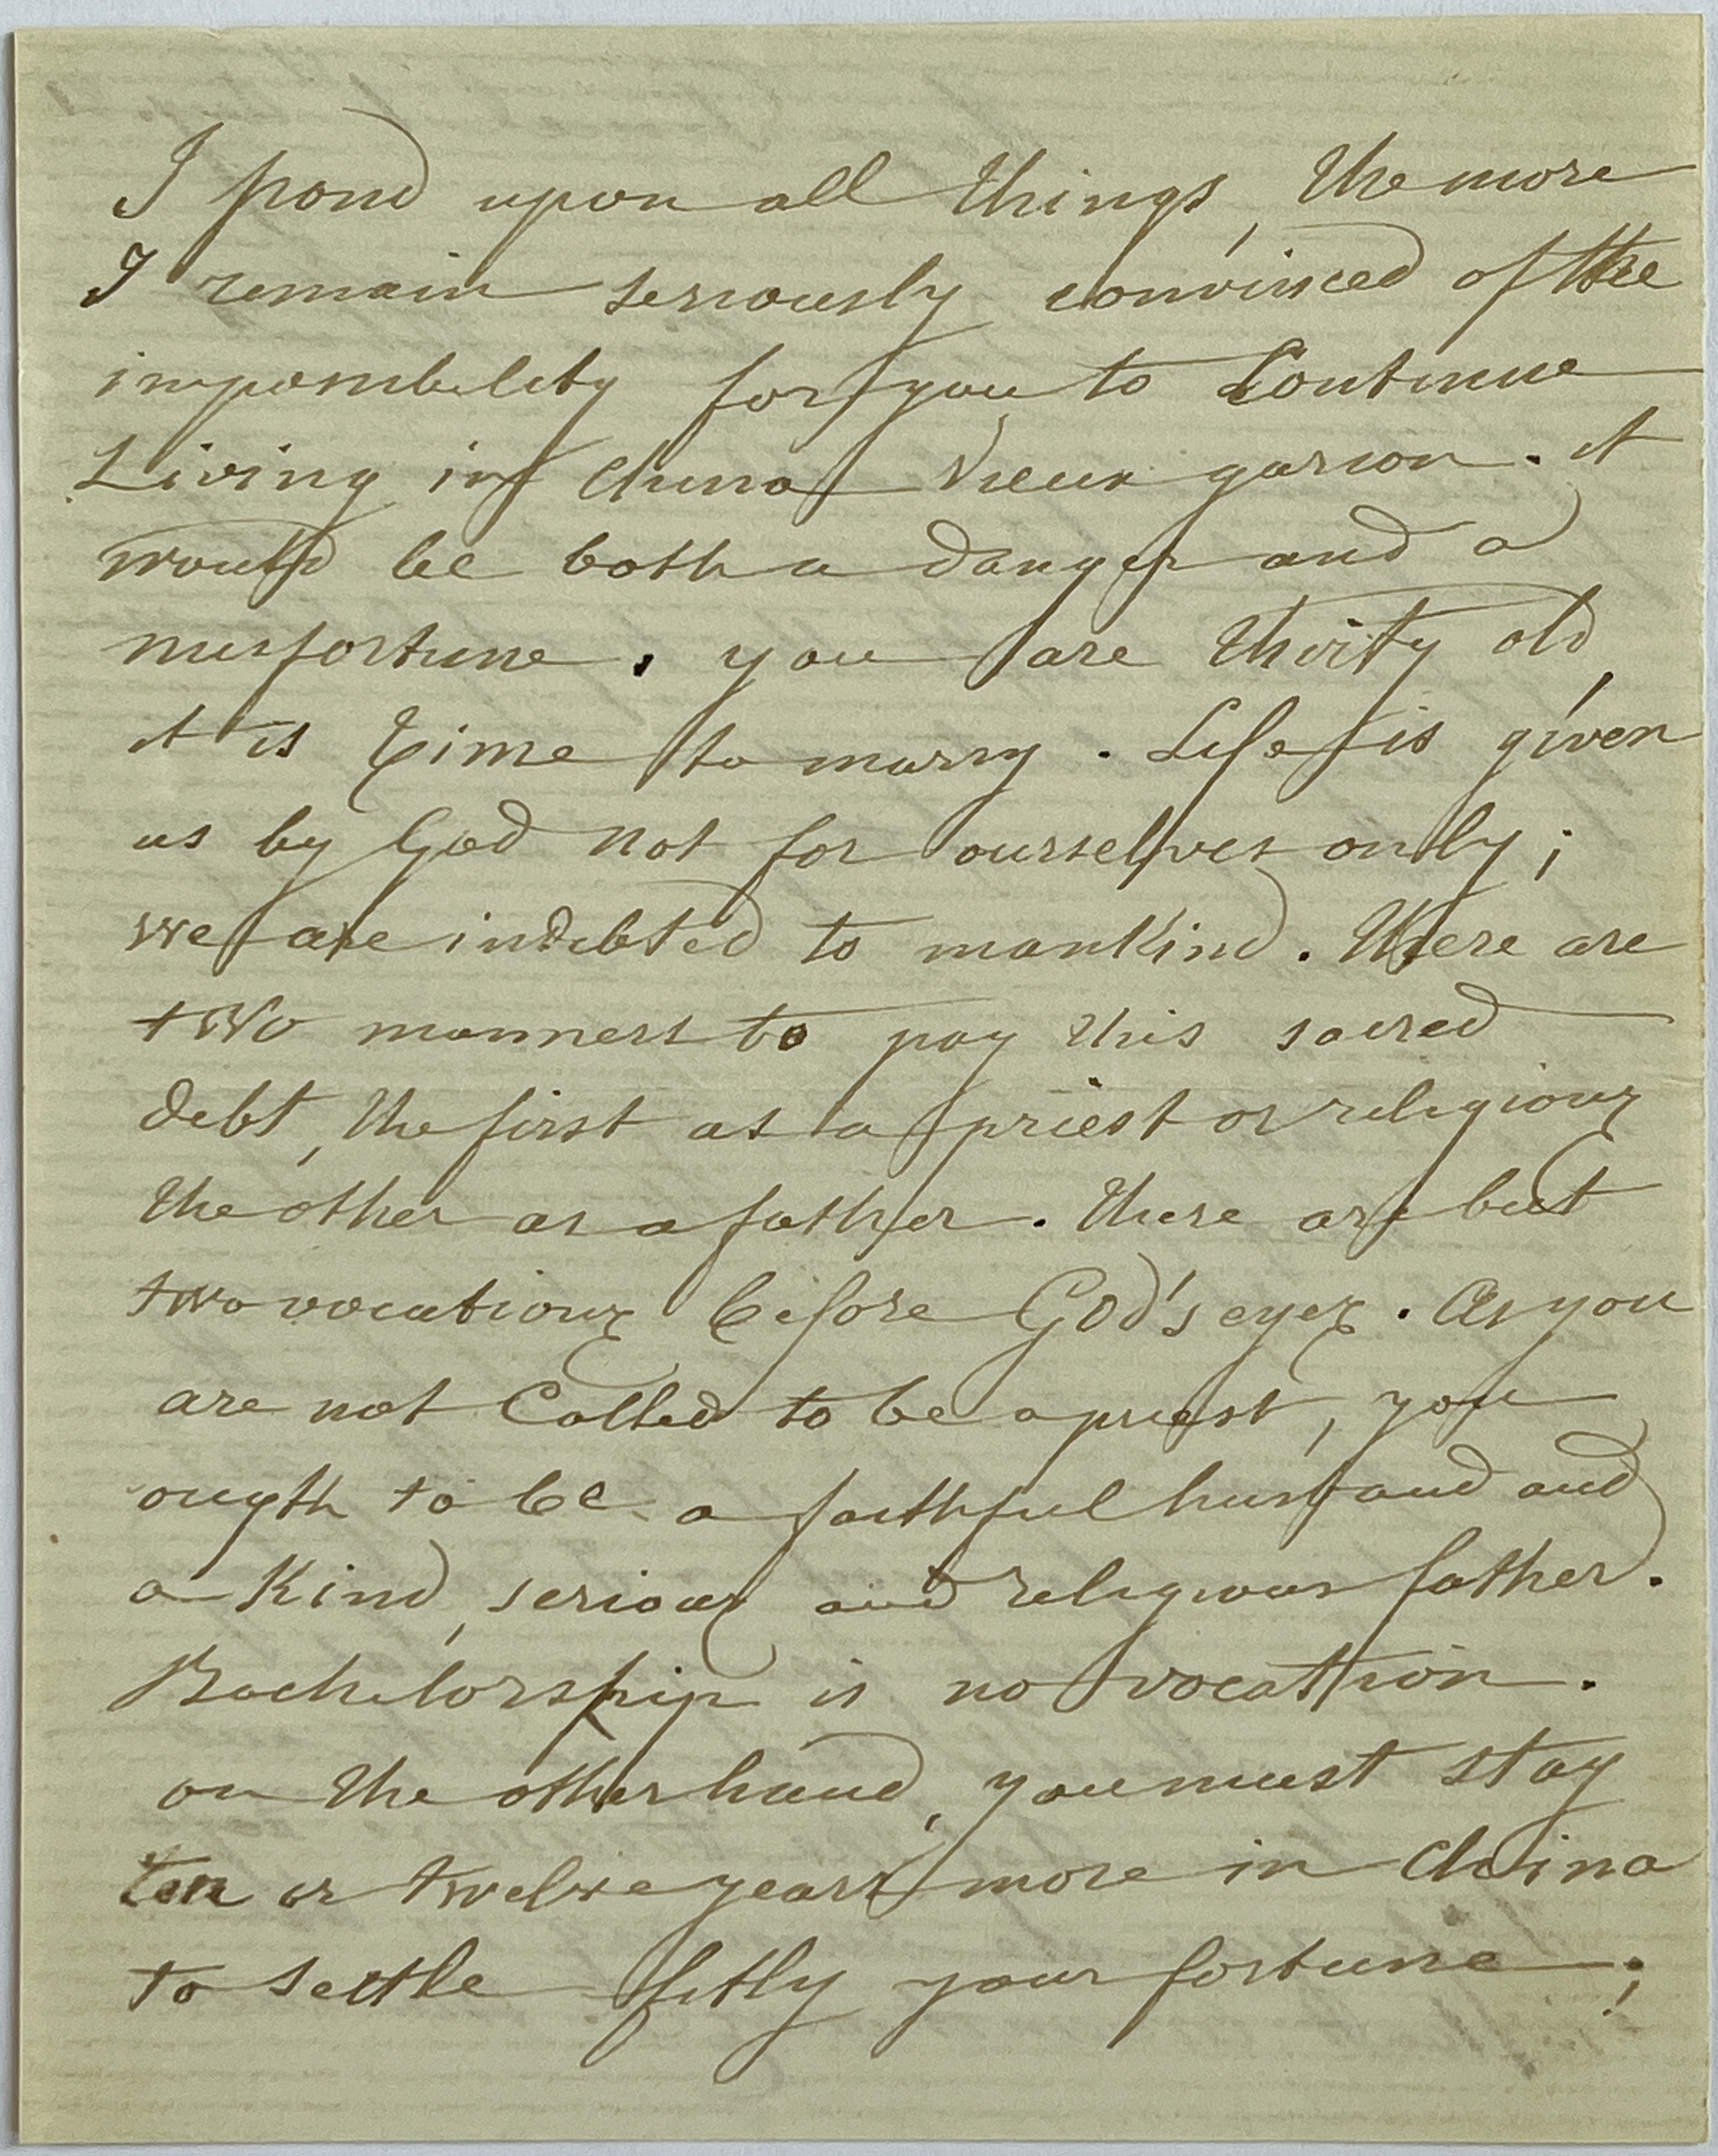 I pond upon all things, the more
I remain seriously convinced of the
impossibility for you to Continue
Living in China vieux garson. it
would be both a danger and a
misfortune. you are thirty old,
it is time to marry. Life is given
us by God not for ourselves only;
we are indebted to mankind. There are
two manners to pay this sacred
debt, the first as a priest or religious
the other as a father. There are but
two vocations before God's eyes. As you
are not Called to be a priest, you
ougth to be a faithful husband and
a Kind, serious and religious father.
Bachelorship is no vocation.
on the other hand, you must stay
ten or twelve years more in China
to settle fitly your fortune;